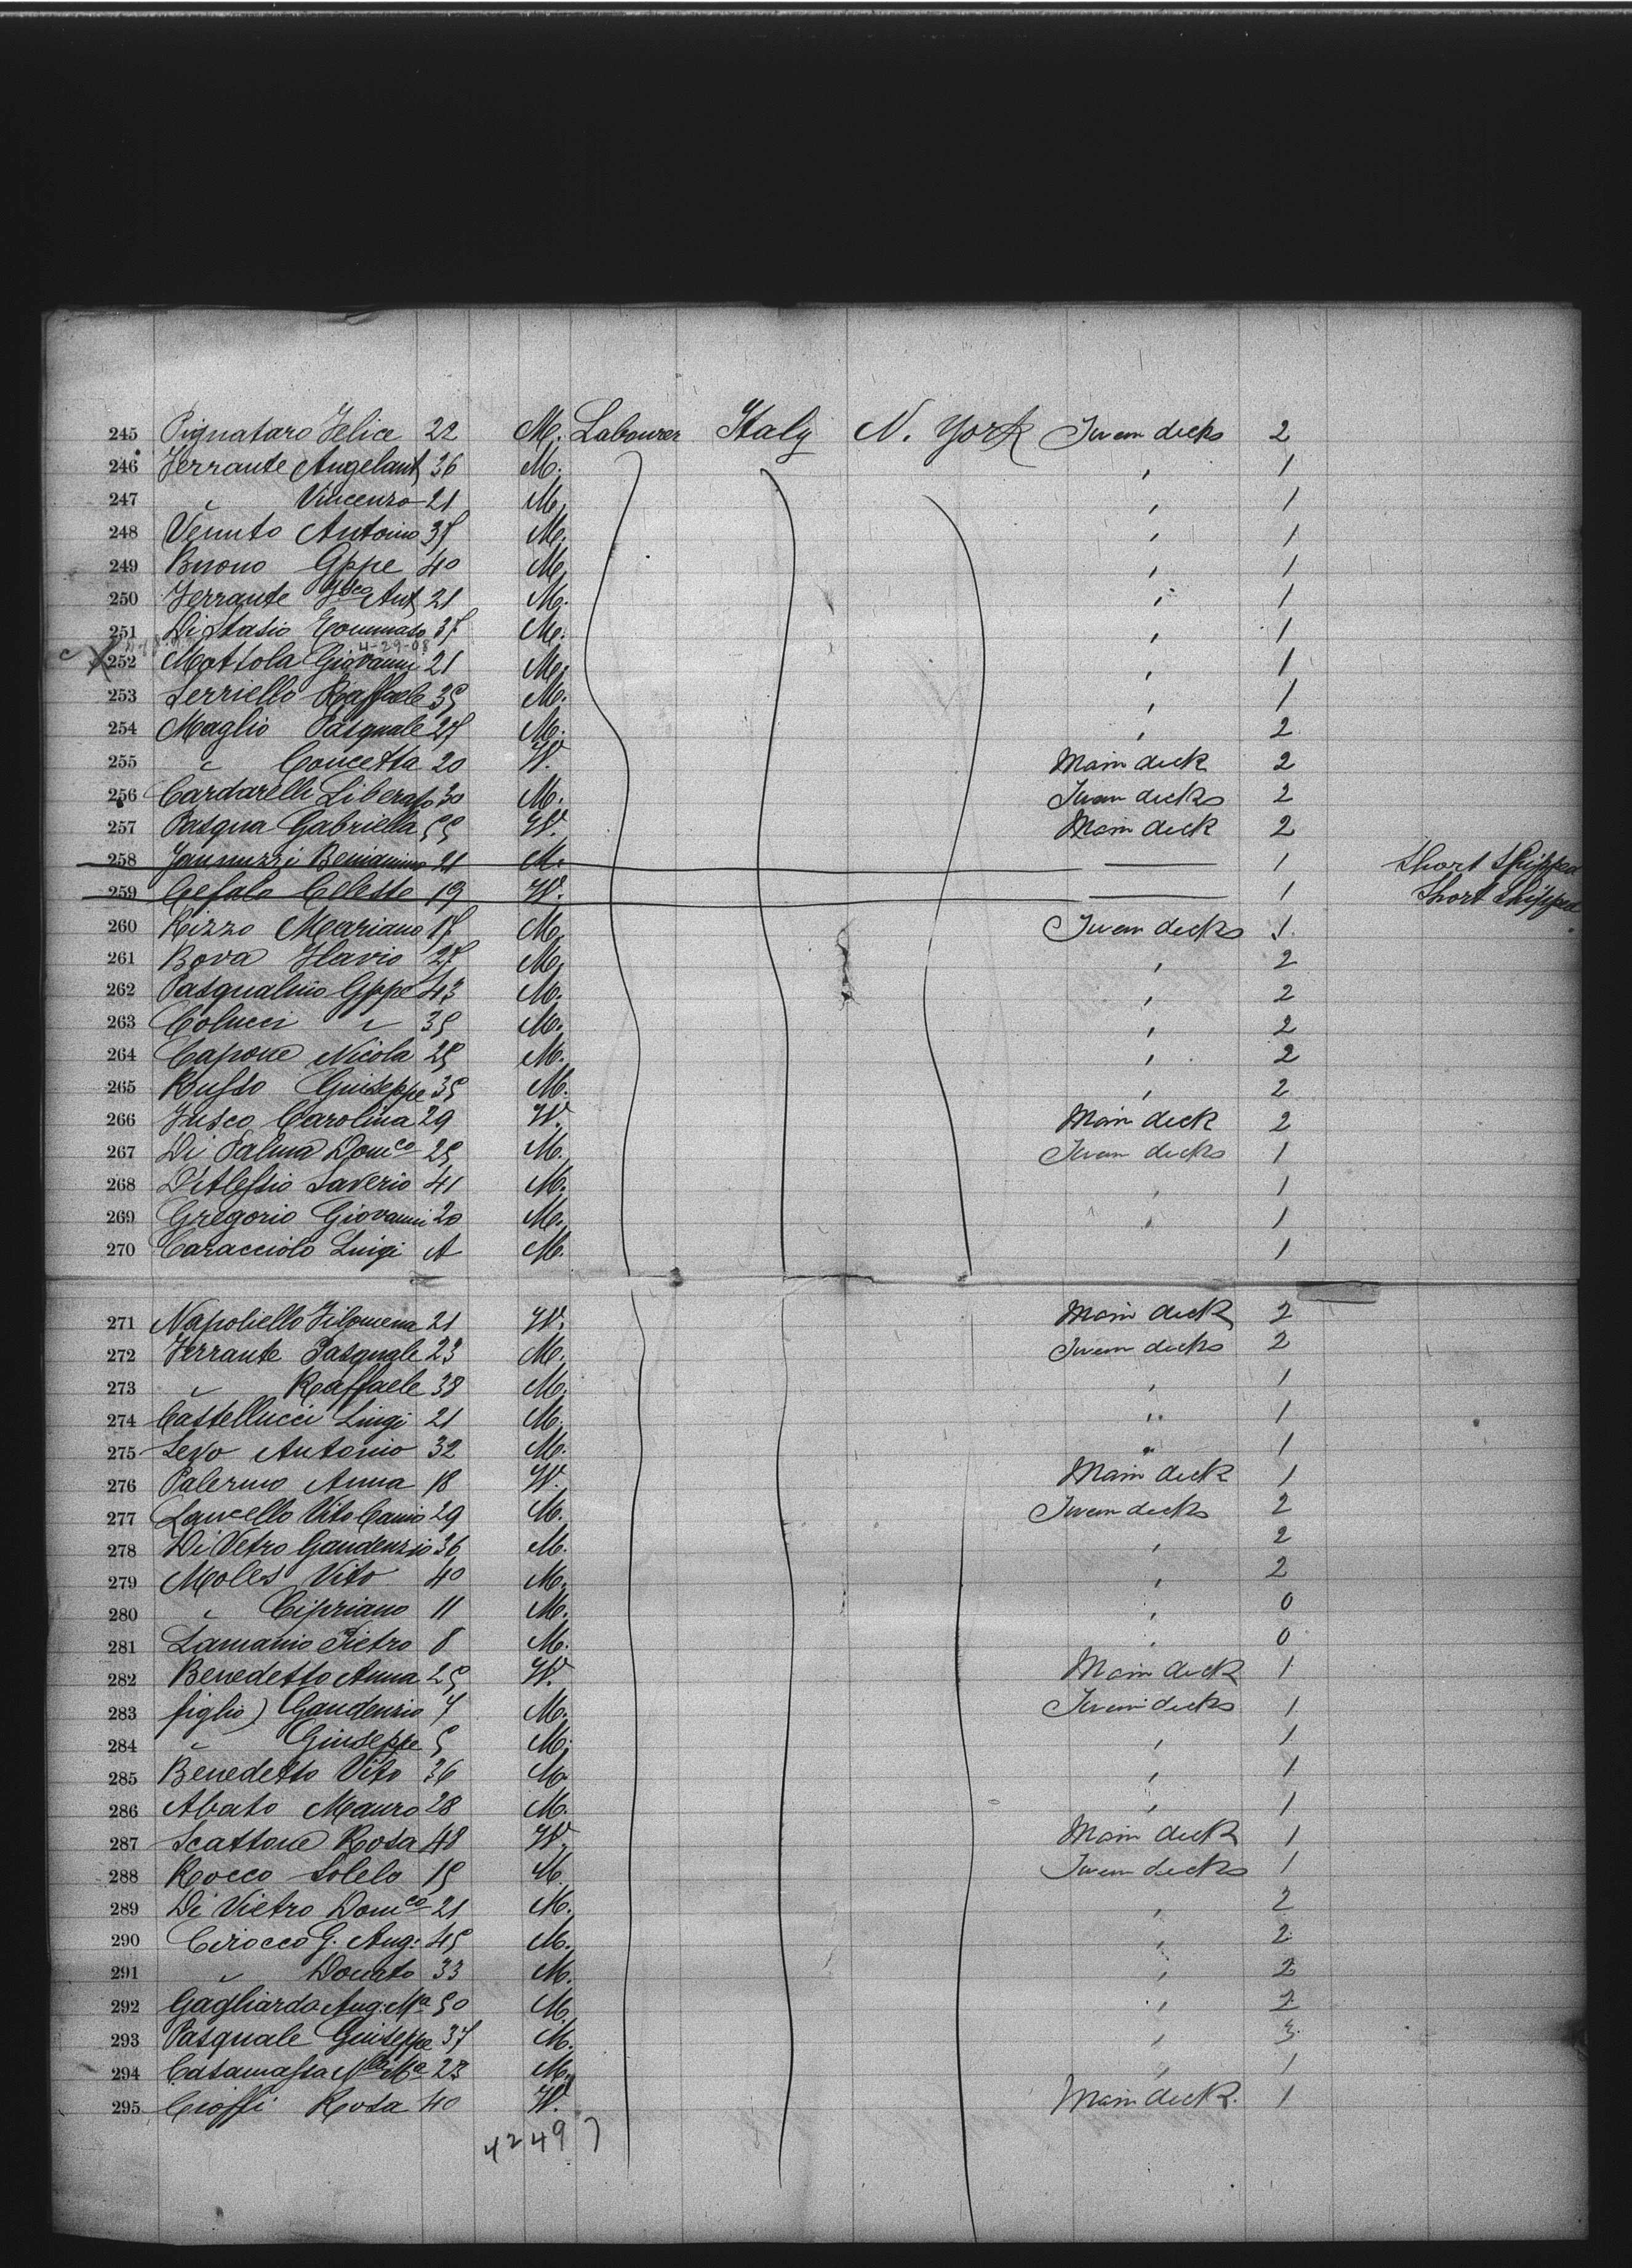 245 Pignataro Felice 22 M. Labourer Italy N. York Tween decks 2
246 Ferrante Angelant 36 M. " 1
247 " Vincenzo 21 M. " 1
248 Venuto Antonio M. " 1
249 Buono Gppe 40 M. " 1
250 Ferrante Fsco Ant 21 M. " 1
251 Di Stasio Tommaso M. " 1
4-29-08
252 Mottola Giovanni 21 M. " 1
253 Serriello Raffaele 35 M. " 1
254 Maglio Pasquale M. " 2
255 " Concetta 20 W. Main deck 2
256 Cardarelli Liberato 30 M. Tween decks 2
257 Pasqua Gabriella 55 W. Main deck 2
258 Jannuzzi Beniamino 21 M. 1 Short Shipped
259 Cefalo Celeste 19 W. 1 Short Shipped
260 Rizzo Mariano M. Tween decks 1
261 Bova Flavio M. " 2
262 Pasqualino Gppe 43 M. " 2
263 Colucci " 35 M. " 2
264 Capone Nicola 25 M. " 2
265 Russo Giuseppe 35 M. " 2
266 Fusco Carolina 29 W. Main deck 2
267 Di Palma Domco 25 M. Tween decks 1
268 D'Alessio Saverio 41 M. " 1
269 Gregorio Giovanni 20 M. " 1
270 Caracciolo Luigi A M. 1
271 Napoliello Filomena 21 W. Main deck 2
272 Ferrante Pasquale 23 M. Tween decks 2
273 " Raffaele 38 M. " 1
274 Castellucci Luigi 21 M. " 1
275 Antonio 32 M. " 1
276 Palermo Anna 18 W. Main deck 1
277 Lancello Vito Canio 29 M. Tween decks 2
278 Di Vetro Gaudenzio 36 M. " 2
279 Moles Vito 40 M. " 2
280 " Cipriano 11 M. " 0
281 Lamanio Pietro 8 M. " 0
282 Benedetto Anna 25 W. Main deck 1
283 figlio) Gaudenzio 7 M. Tween decks 1
284 " Giuseppe 5 M. " 1
285 Benedetto Vito 36 M. " 1
286 Abato Mauro 28 M. " 1
287 Scattone Rosa 48 W. Main deck 1
288 Rocco Solelo 15 M. Tween decks 1
289 Di Vietro Domco 21 M. " 2
290 Cirocco G. Ang: 45 M. " 2
291 " Donato 33 M. " 2
292 Gagliardo Ang: Ma 50 M. " 2
293 Pasquale Giuseppe 37 M. " 3
294 Casamassa M. " 1
295 Cioffi Rosa 40 W. Main deck. 1
42497